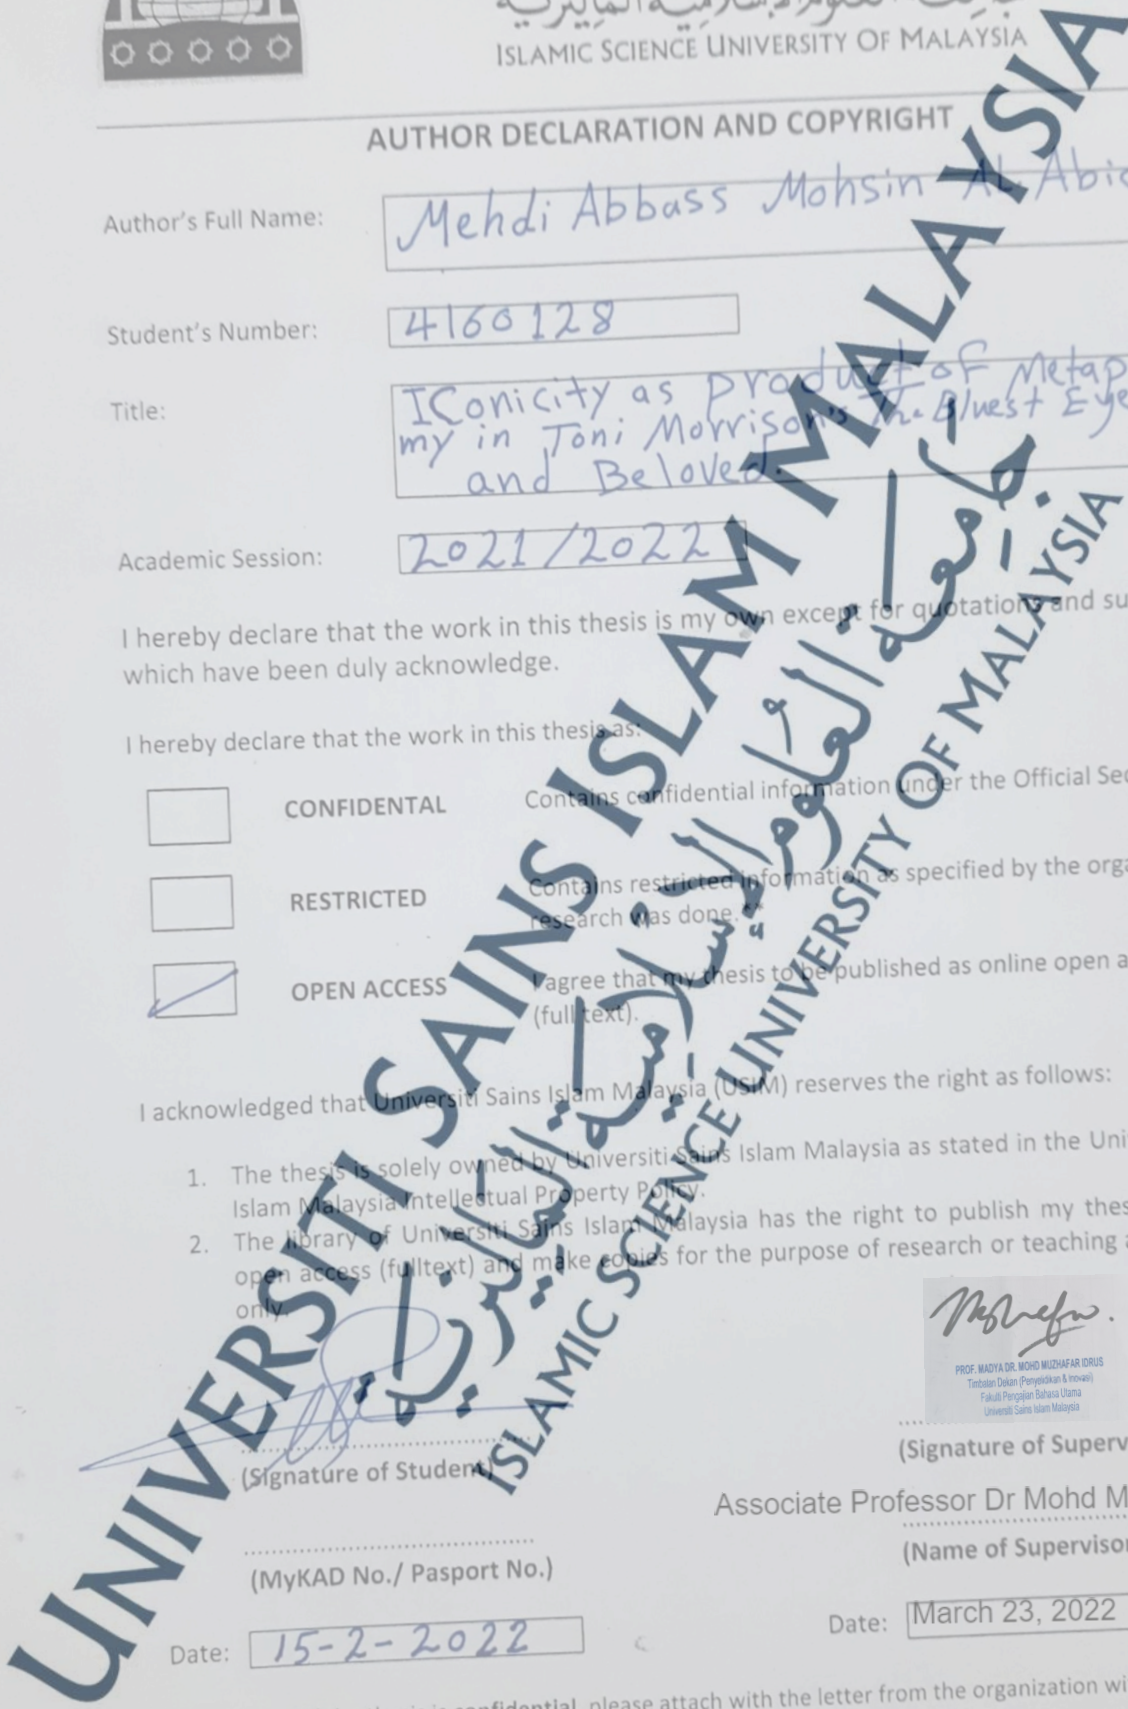 ISLAMIC SCIENCE UNIVERSITY OF MALAYSIA
AUTHOR DECLARATION AND COPYRIGHT
Author's Full Name: Mehdi Abbass Mohsin AL Abid
Student's Number: 4160128
Title: IConicity as product of Metap
my in Toni Morrison's The Bluest Eye
and Beloved.
Academic Session: 2021/2022
I hereby declare that the work in this thesis is my own except for quotations and su
which have been duly acknowledge.
I hereby declare that the work in this thesis as:
CONFIDENTAL Contains confidential information under the Official Sec
RESTRICTED Contains restricted information as specified by the orga
research was done.**
OPEN ACCESS I agree that my thesis to be published as online open a
(full text).
I acknowledged that Universiti Sains Islam Malaysia (USIM) reserves the right as follows:
1. The thesis is solely owned by Universiti Sains Islam Malaysia as stated in the Uni
Islam Malaysia Intellectual Property Policy.
2. The library of Universiti Sains Islam Malaysia has the right to publish my thes
open access (fulltext) and make copies for the purpose of research or teaching a
only.
PROF. MADYA DR. MOHD MUZHAFAR IDRUS
Timbalan Dekan (Penyelidikan & Inovasi)
Fakulti Pengajian Bahasa Utama
Universiti Sains Islam Malaysia
(Signature of Student) (Signature of Superv
Associate Professor Dr Mohd M
(MyKAD No./ Pasport No.) (Name of Superviso
Date: 15-2-2022 Date: March 23, 2022
please attach with the letter from the organization wi
UNIVERSITI SAINS ISLAM MALAYSIA
جامعة العلوم الإسلامية الماليزية
ISLAMIC SCIENCE UNIVERSITY OF MALAYSIA